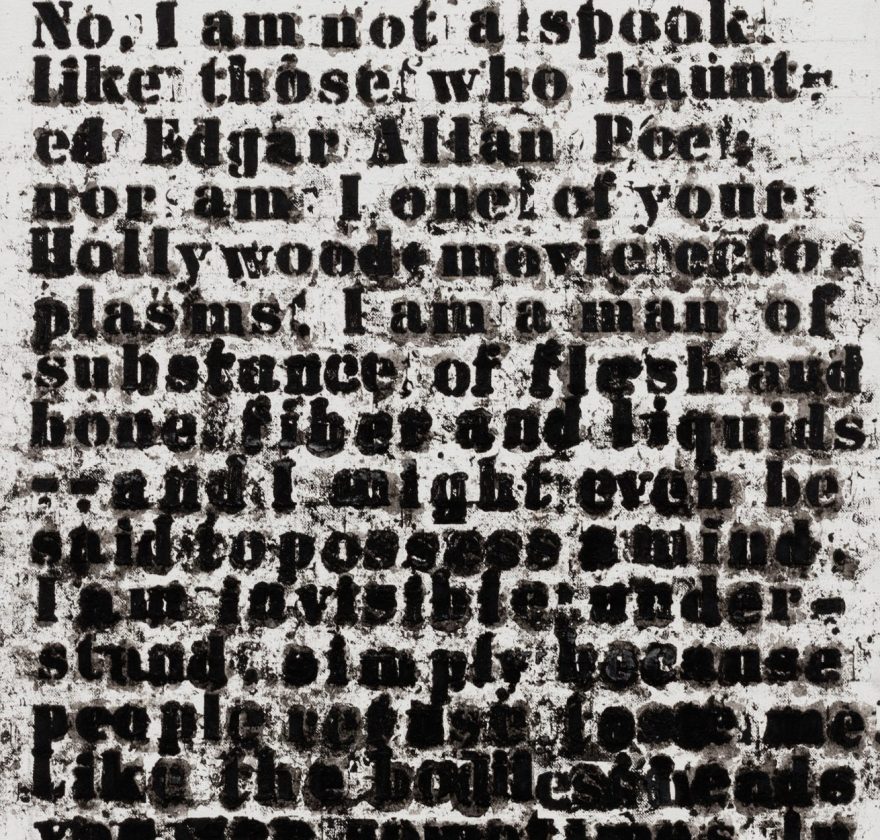 No, I am not a spook
like those who haunt-
ed Edgar Allan Poe;
nor am I one of your
Hollywood-movie ecto-
plasms. I am a man of
substance, of flesh and
bone, fiber and liquids
--and I might even be
said to possess a mind.
I am invisible, under-
stand, simply because
people refuse to see me.
Like the bodiless heads
you see sometimes in